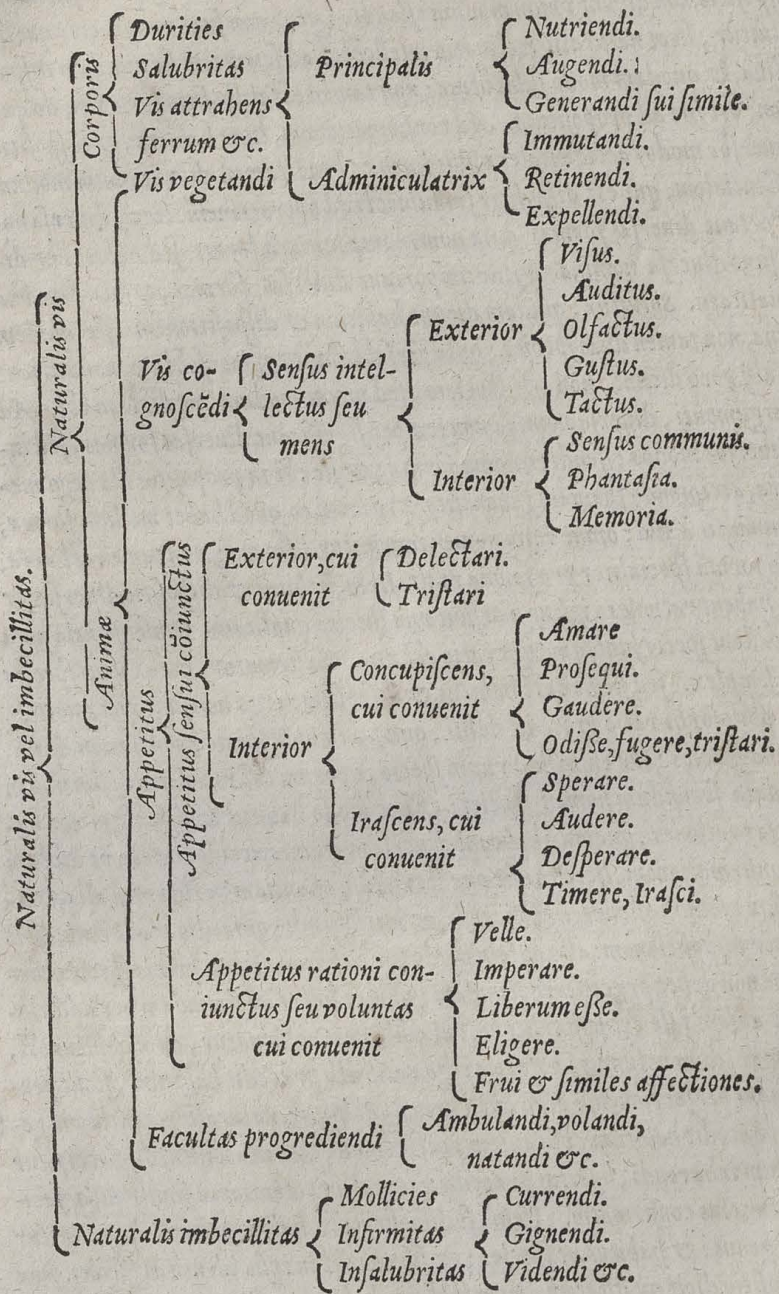 Naturalis vis vel imbecillitas.
Naturalis vis
Corporis
Durities
Salubritas
Vis attrahens
ferrum &c.
Vis vegetandi
Principalis
Nutriendi.
Augendi.:
Generandi sui simile.
Adminiculatrix
Immutandi.
Retinendi.
Expellendi.
Animæ
Vis co-
gnoscēdi
Sensus intel-
lectus seu
mens
Exterior
Visus.
Auditus.
Olfactus.
Gustus.
Tactus.
Interior
Sensus communis.
Phantasia.
Memoria.
Appetitus
Appetitus sensui cōiunctus
Exterior, cui
conuenit
Delectari.
Tristari
Interior
Concupiscens,
cui conuenit
Amare
Prosequi.
Gaudere.
Odisse, fugere, tristari.
Irascens, cui
conuenit
Sperare.
Audere.
Desperare.
Timere, Irasci.
Appetitus rationi con-
iunctus seu voluntas
cui conuenit
Velle.
Imperare.
Liberum esse.
Eligere.
Frui & similes affectiones.
Facultas progrediendi
Ambulandi, volandi,
natandi &c.
Naturalis imbecillitas
Mollicies
Infirmitas
Insalubritas
Currendi.
Gignendi.
Videndi &c.